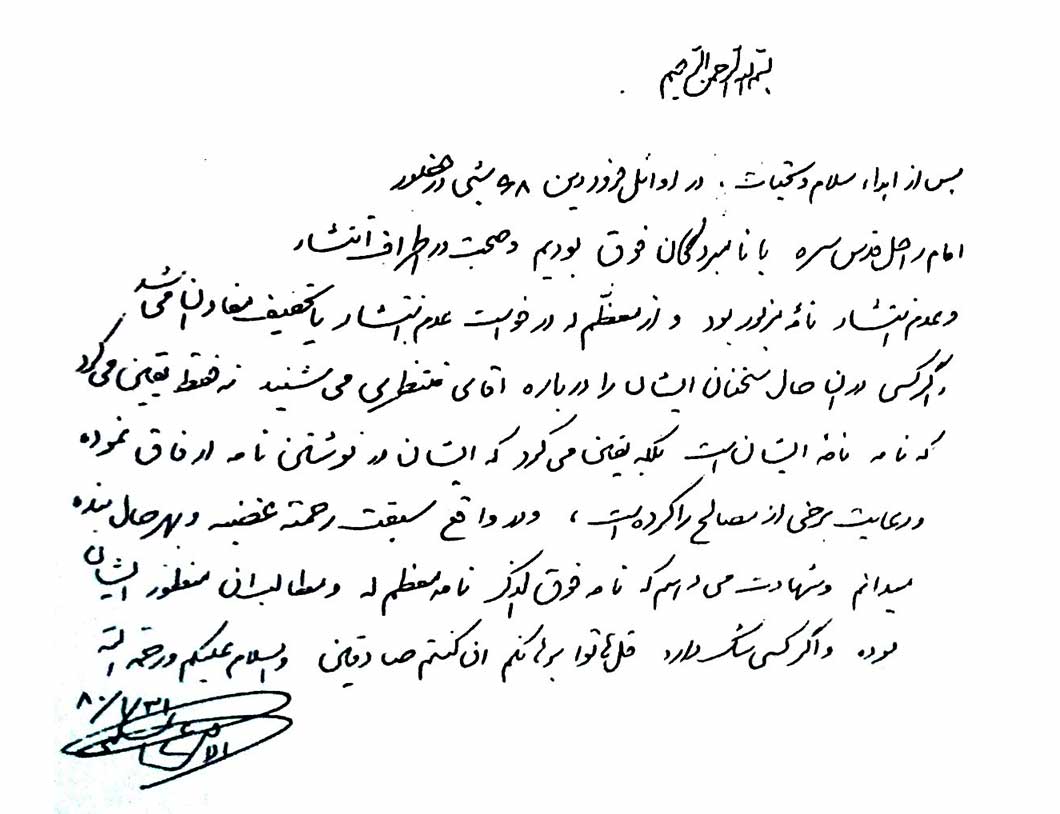 بسم الله الرحمن الرحیم
پس از اهداء سلام و تحیات، در اوائل فروردین ۶۸ شبی در حضور
امام راحل قدس سره با نامبردگان فوق بودیم و صحبت در اطراف انتشار
و عدم انتشار نامهٔ مزبور بود و از معظّم له درخواست عدم انتشار یا تخفیف مفاد آن می‌شد
و اگر کسی در آن حال سخنان ایشان را درباره آقای منتظری می‌شنید نه فقط یقین می‌کرد
که نامه نامهٔ ایشان است بلکه یقین می‌کرد که ایشان در نوشتن نامه ارفاق نموده
و رعایت برخی از مصالح را کرده است، و در واقع سبقت رحمته غضبه و بهر حال بنده
میدانم و شهادت می‌دهم که نامه فوق الذکر نامه معظم له و مطالب آن منظور ایشان
بوده و اگر کسی شک دارد قل هاتوا برهانکم ان کنتم صادقین والسلام علیکم و رحمة الله
۸۰/۱/۳۱